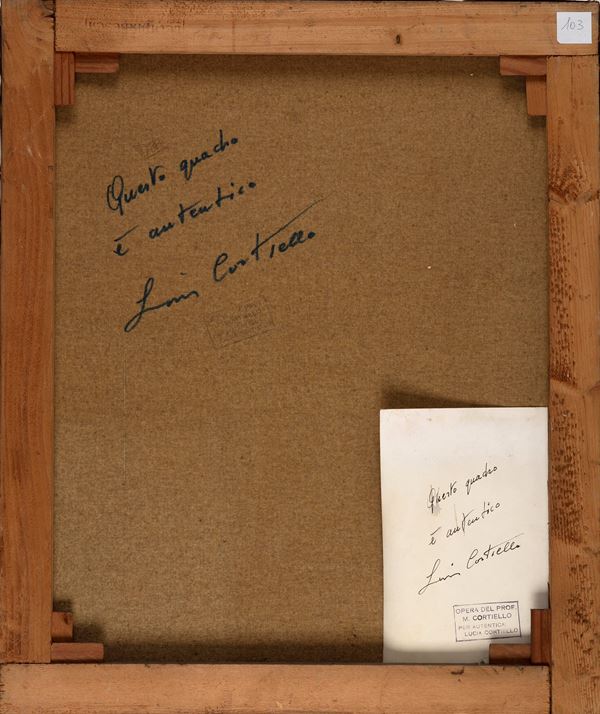 103
Questo quadro
è autentico
Luis Cortiello
Questo quadro
è autentico
Luis Cortiello
OPERA DEL PROF.
M. CORTIELLO
PER AUTENTICA
LUCIA CORTIELLO